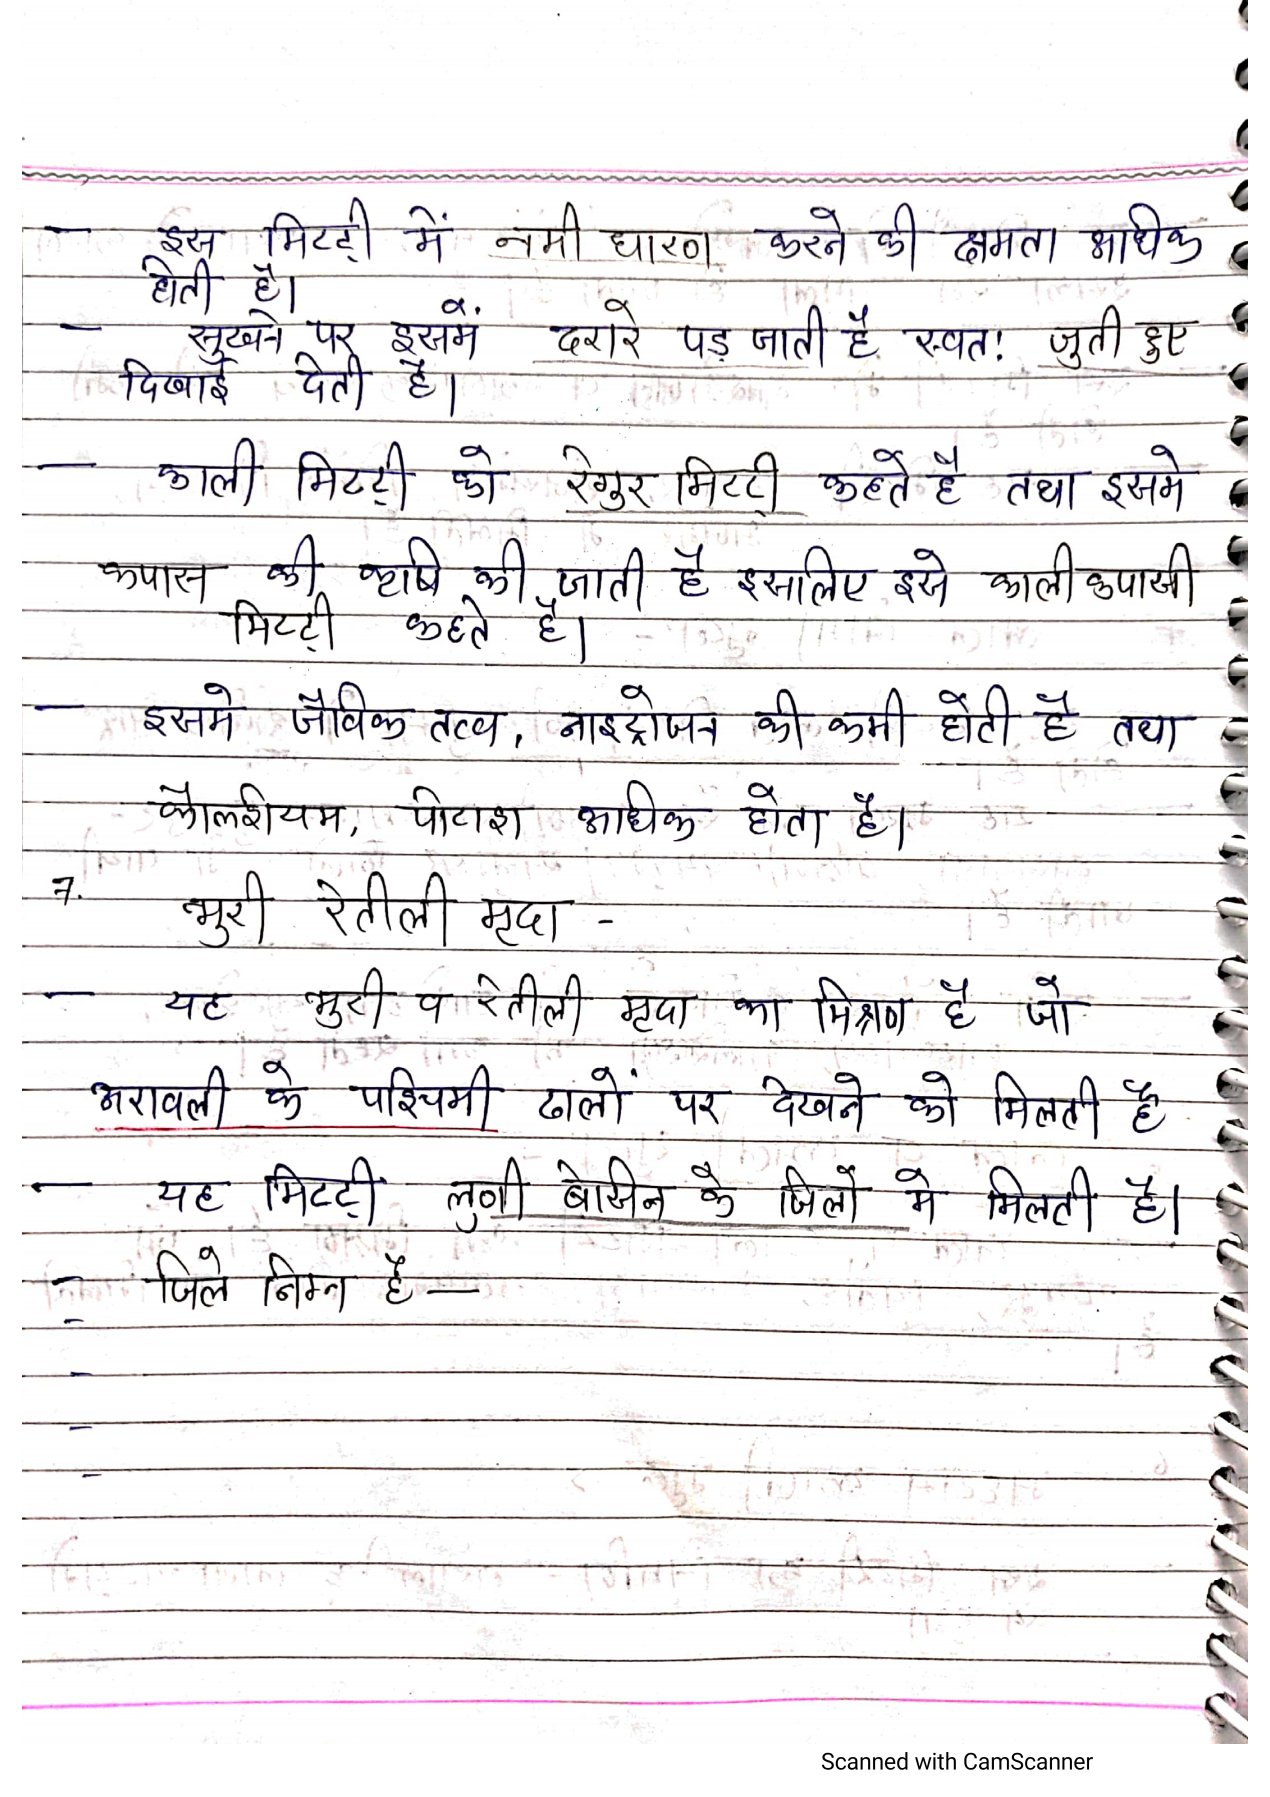 - इस मिटटी में नमी धारण करने की क्षमता अधिक
होती है।
- सुखने पर इसमें दरारे पड़ जाती है स्वत: जुती हुए
दिखाई देती है।
- काली मिटटी को रेगुर मिटटी कहते है तथा इसमे
कपास की कृषि की जाती है इसलिए इसे काली कपासी
मिटटी कहते है।
- इसमे जैविक तत्व, नाइट्रोजन की कमी होती है तथा
कैल्शीयम, पोटाश अधिक होता है।
7. भुरी रेतीली मृदा -
- यह भुरी व रेतीली मृदा का मिश्रण है जो
अरावली के पश्चिमी ढालों पर देखने को मिलती है
- यह मिटटी लुणी बेसिन के जिलों मे मिलती है।
- जिले निम्न है -
-
-
-
-
Scanned with CamScanner